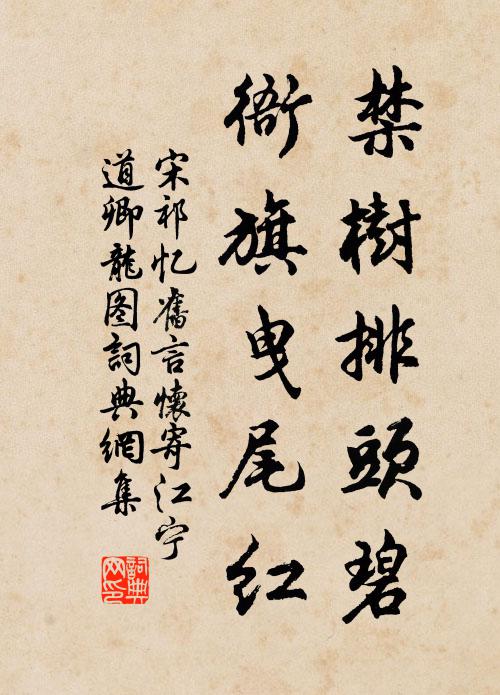 禁樹排頭碧
衙旗曳尾红
宋祁忆舊言懷寄江宁
道卿龍图詞典網集
詞典
网印